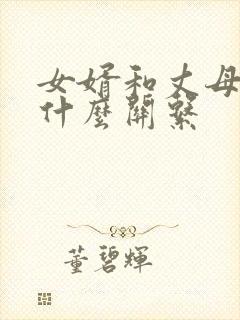 女婿和丈母
什麼關繫
董碧輝